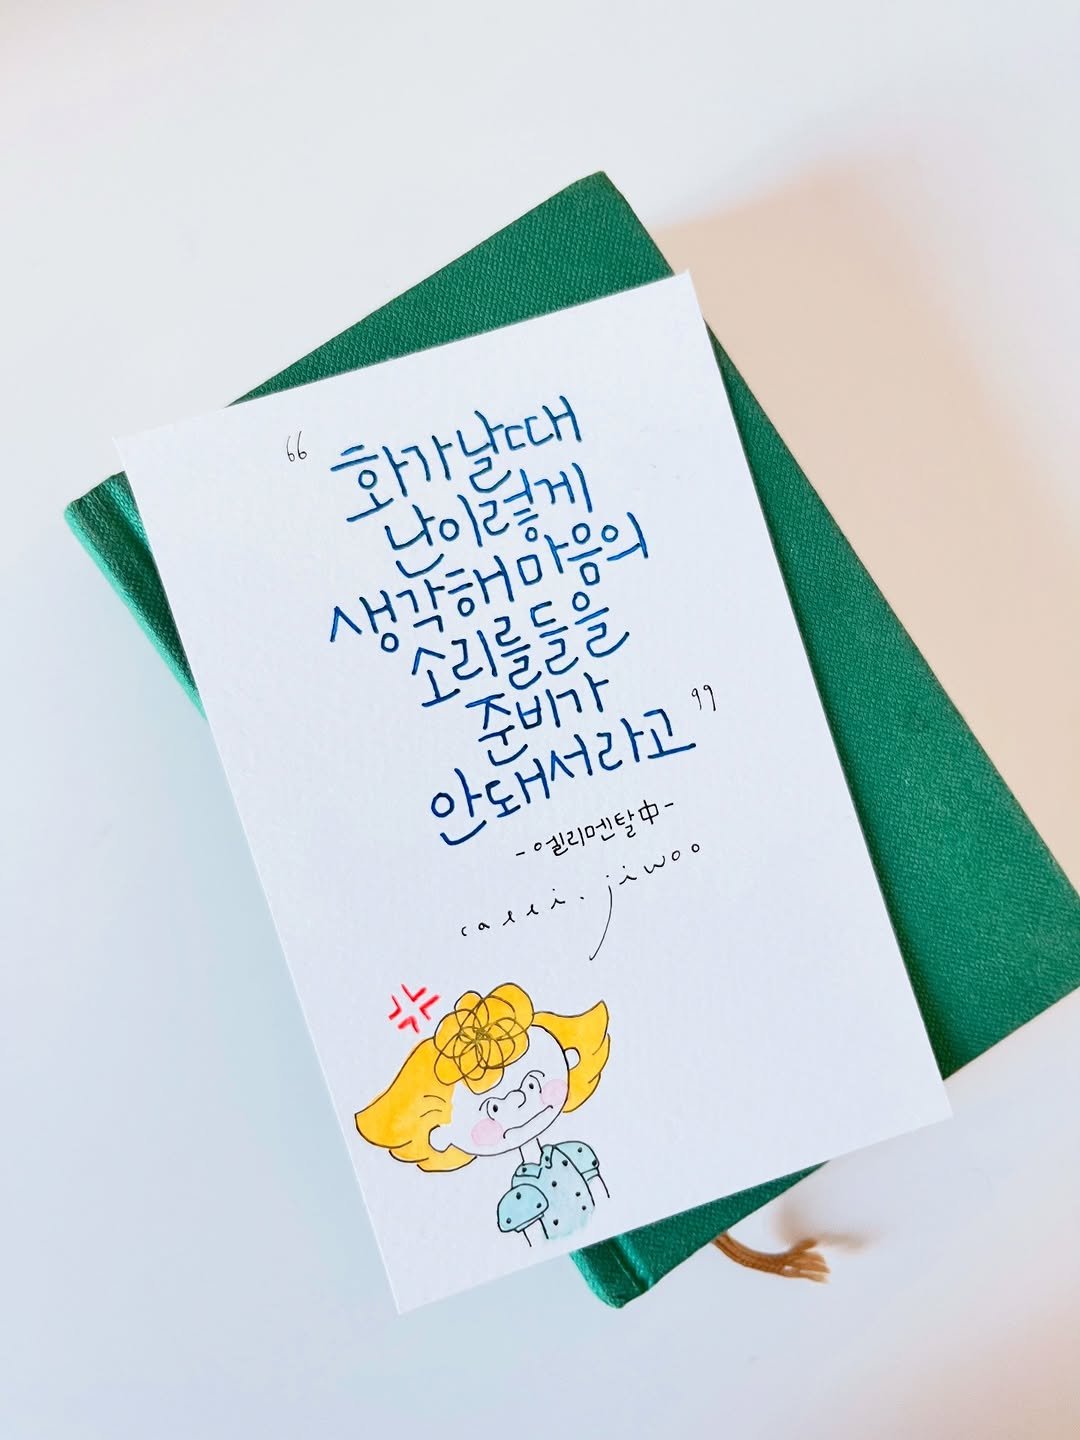 “ 화가날때
난이렇게
생각해마음의
소리를들을
준비가
안돼서라고 ”
-엘리멘탈中-
calli.jiwoo